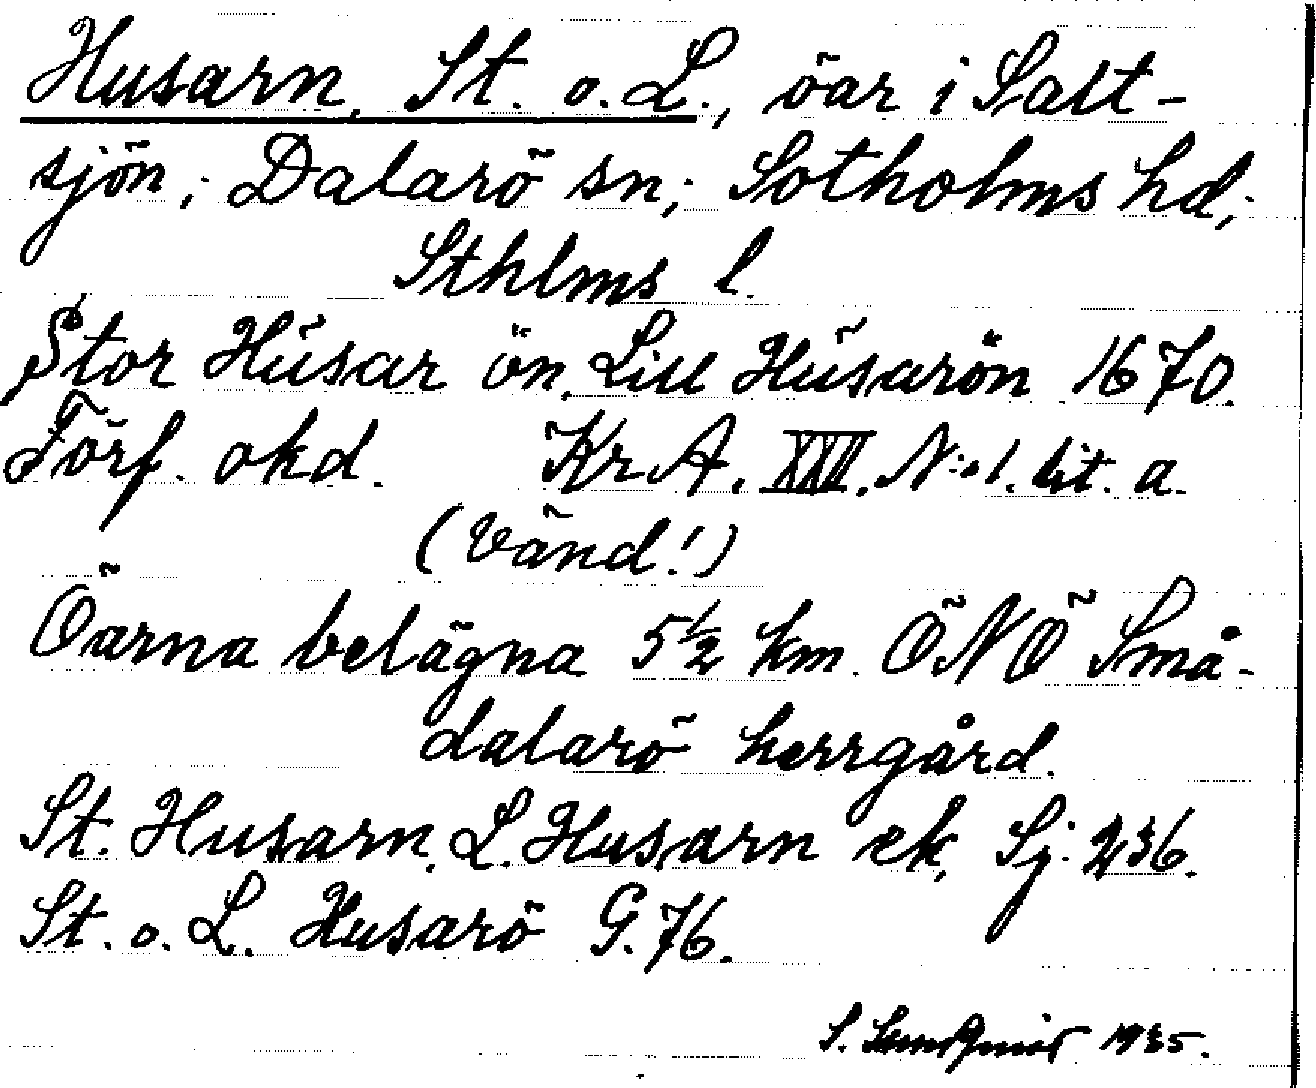 Husarn, St. o. L., öar i Salt-
sjön; Dalarö sn; Sotholms hd;
Sthlms l.
Stor Hüsar ön, Lill Hüsarön 1670.
Förf. okd. KrA. XXII. N:o 1. lit. a.
(Vänd!)
Öarna belägna 5½ km. ÖNÖ Små-
dalarö herrgård.
St. Husarn, L. Husarn ek, Sj. 236.
St. o. L. Husarö G. 76.
S. 1935.